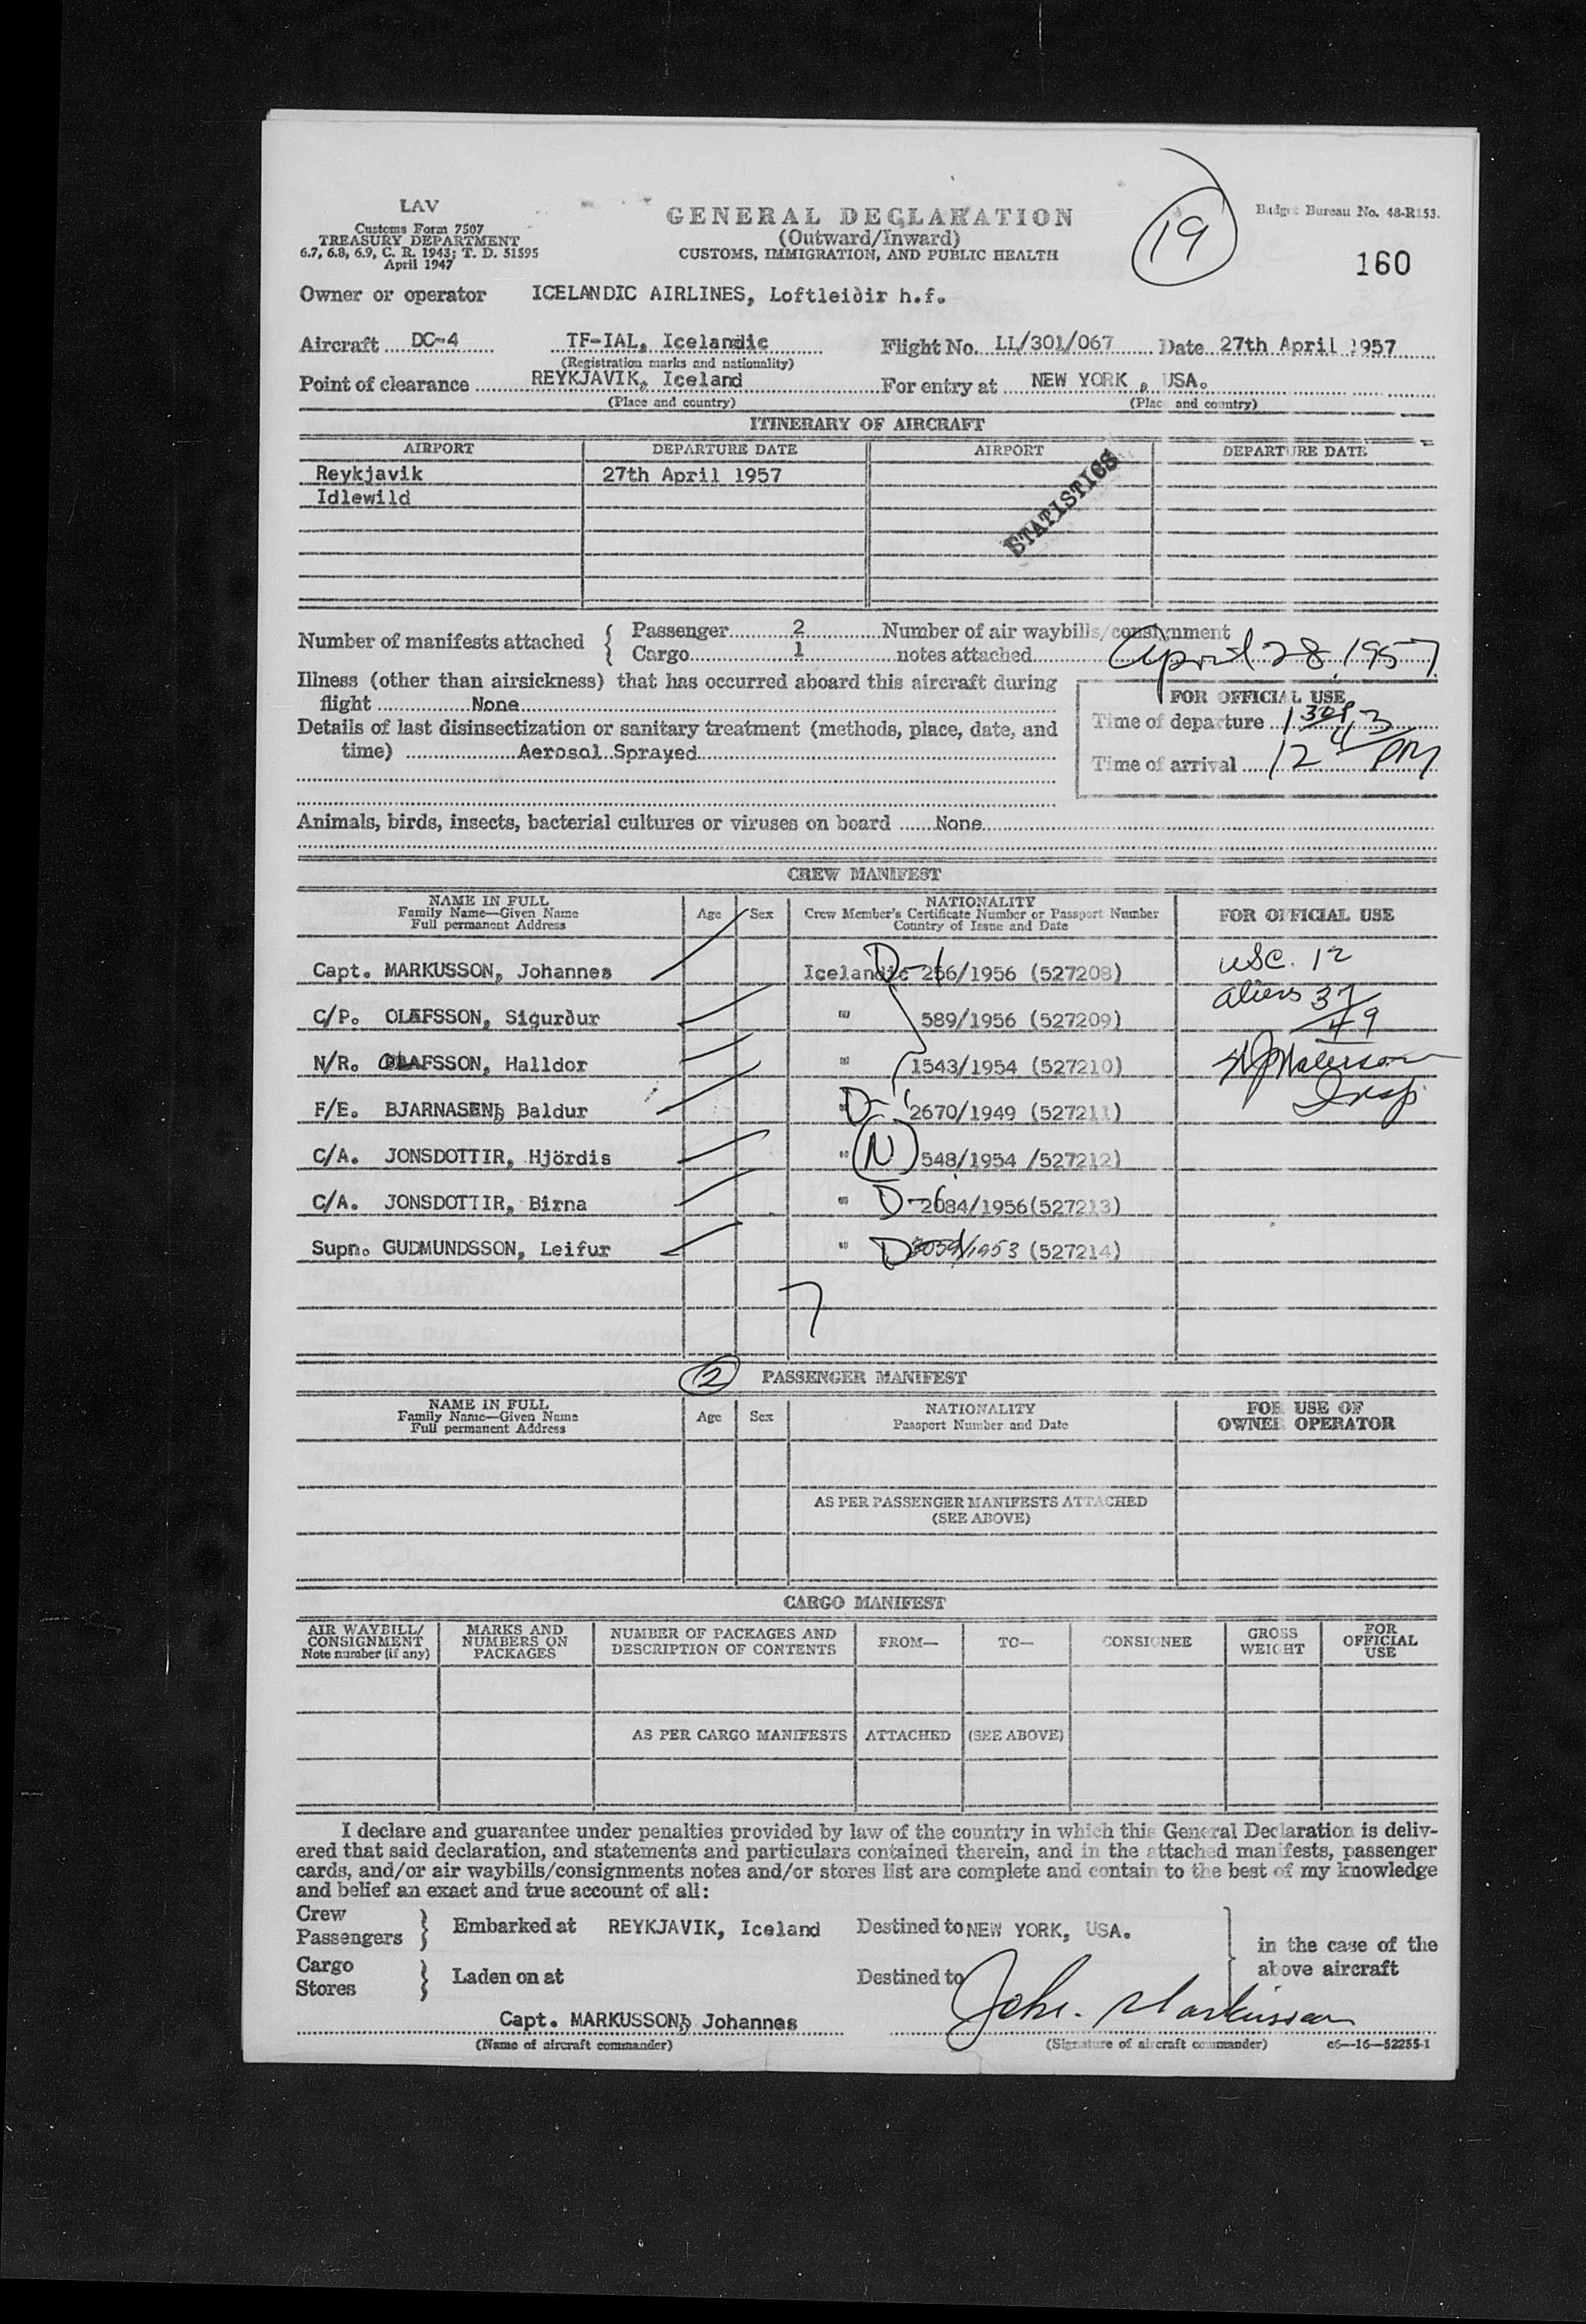 LAV
Customs Form 7507
TREASURY DEPARTMENT
6.7, 6.8, 6.9, C. R. 1943; T. D. 51595
April 1947
GENERAL DECLARATION
(Outward/Inward)
CUSTOMS, IMMIGRATION, AND PUBLIC HEALTH
19
Budget Bureau No. 48-R153.
160
Owner or operator ICELANDIC AIRLINES, Loftleiðir h.f.
Aircraft DC-4 TF-IAL, Icelandic Flight No. LL/301/067 Date 27th April 1957
(Registration marks and nationality)
Point of clearance REYKJAVIK, Iceland For entry at NEW YORK , USA.
(Place and country) (Place and country)
ITINERARY OF AIRCRAFT
AIRPORT DEPARTURE DATE AIRPORT DEPARTURE DATE
Reykjavik 27th April 1957
Idlewild
STATISTICS
Number of manifests attached { Passenger 2 Number of air waybills/consignment
Cargo 1 notes attached
April 28, 1957
Illness (other than airsickness) that has occurred aboard this aircraft during
flight None
FOR OFFICIAL USE
Details of last disinsectization or sanitary treatment (methods, place, date, and
time) Aerosol Sprayed
Time of departure
Time of arrival 12 PM
Animals, birds, insects, bacterial cultures or viruses on board None
CREW MANIFEST
NAME IN FULL
Family Name—Given Name
Full permanent Address
Age Sex
NATIONALITY
Crew Member's Certificate Number or Passport Number
Country of Issue and Date
FOR OFFICIAL USE
Capt. MARKUSSON, Johannes Icelandic D-1 256/1956 (527208) USC. 12
C/P. OLAFSSON, Sigurður " 589/1956 (527209) aliens 37
49
N/R. OLAFSSON, Halldor " 1543/1954 (527210)
Insp
F/E. BJARNASEN, Baldur " D-1 2670/1949 (527211)
C/A. JONSDOTTIR, Hjördis " N 548/1954 /527212)
C/A. JONSDOTTIR, Birna " D-1 2084/1956(527213)
Supn. GUDMUNDSSON, Leifur " D /1953 (527214)
7
2 PASSENGER MANIFEST
NAME IN FULL
Family Name—Given Name
Full permanent Address
Age Sex
NATIONALITY
Passport Number and Date
FOR USE OF
OWNER OPERATOR
AS PER PASSENGER MANIFESTS ATTACHED
(SEE ABOVE)
CARGO MANIFEST
AIR WAYBILL/
CONSIGNMENT
Note number (if any)
MARKS AND
NUMBERS ON
PACKAGES
NUMBER OF PACKAGES AND
DESCRIPTION OF CONTENTS
FROM— TO— CONSIGNEE
GROSS
WEIGHT
FOR
OFFICIAL
USE
AS PER CARGO MANIFESTS ATTACHED (SEE ABOVE)
I declare and guarantee under penalties provided by law of the country in which this General Declaration is deliv-
ered that said declaration, and statements and particulars contained therein, and in the attached manifests, passenger
cards, and/or air waybills/consignments notes and/or stores list are complete and contain to the best of my knowledge
and belief an exact and true account of all:
Crew
Passengers } Embarked at REYKJAVIK, Iceland Destined to NEW YORK, USA.
in the case of the
above aircraft
Cargo
Stores } Laden on at Destined to
Capt. MARKUSSON, Johannes Johs. Markusson
(Name of aircraft commander) (Signature of aircraft commander) c6—16—52255-1